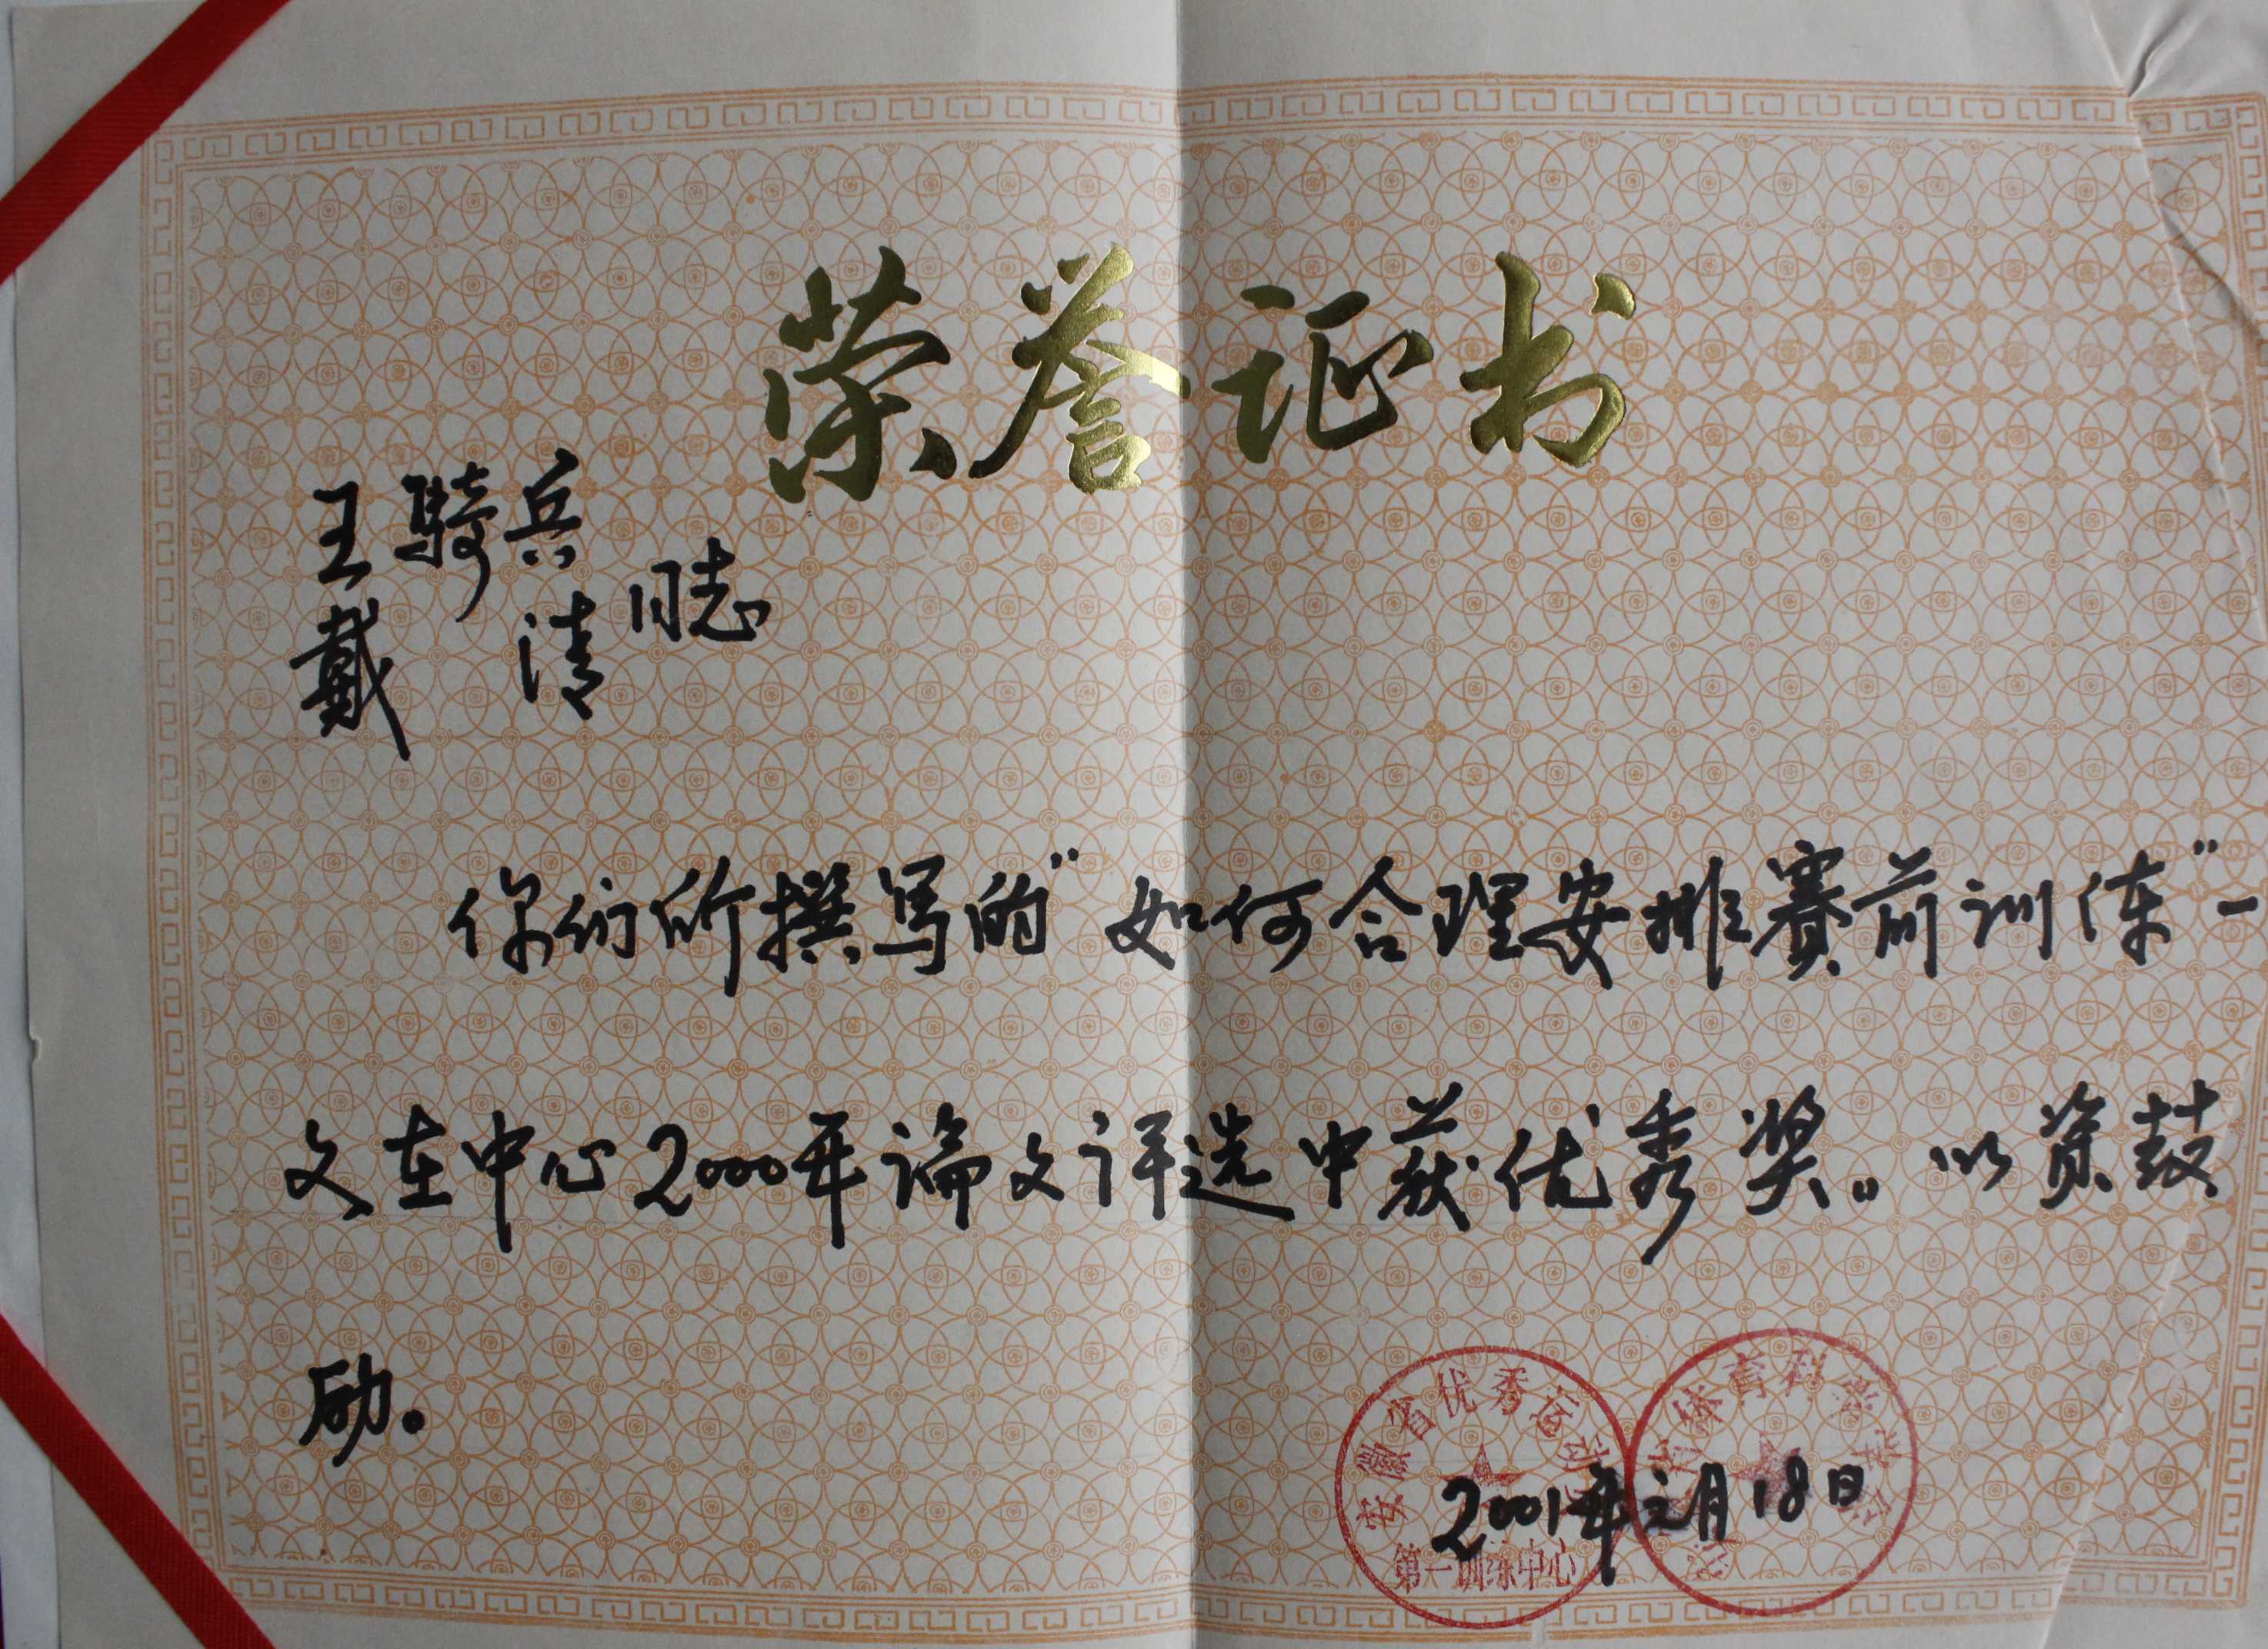 荣誉证书
王骑兵
戴清 同志
你们所撰写的"如何合理安排赛前训练"一
文在中心2000年论文评选中获优秀奖。以资鼓
励。
安徽省优秀运动
第一训练中心
体育科学学会
2001年元月18日